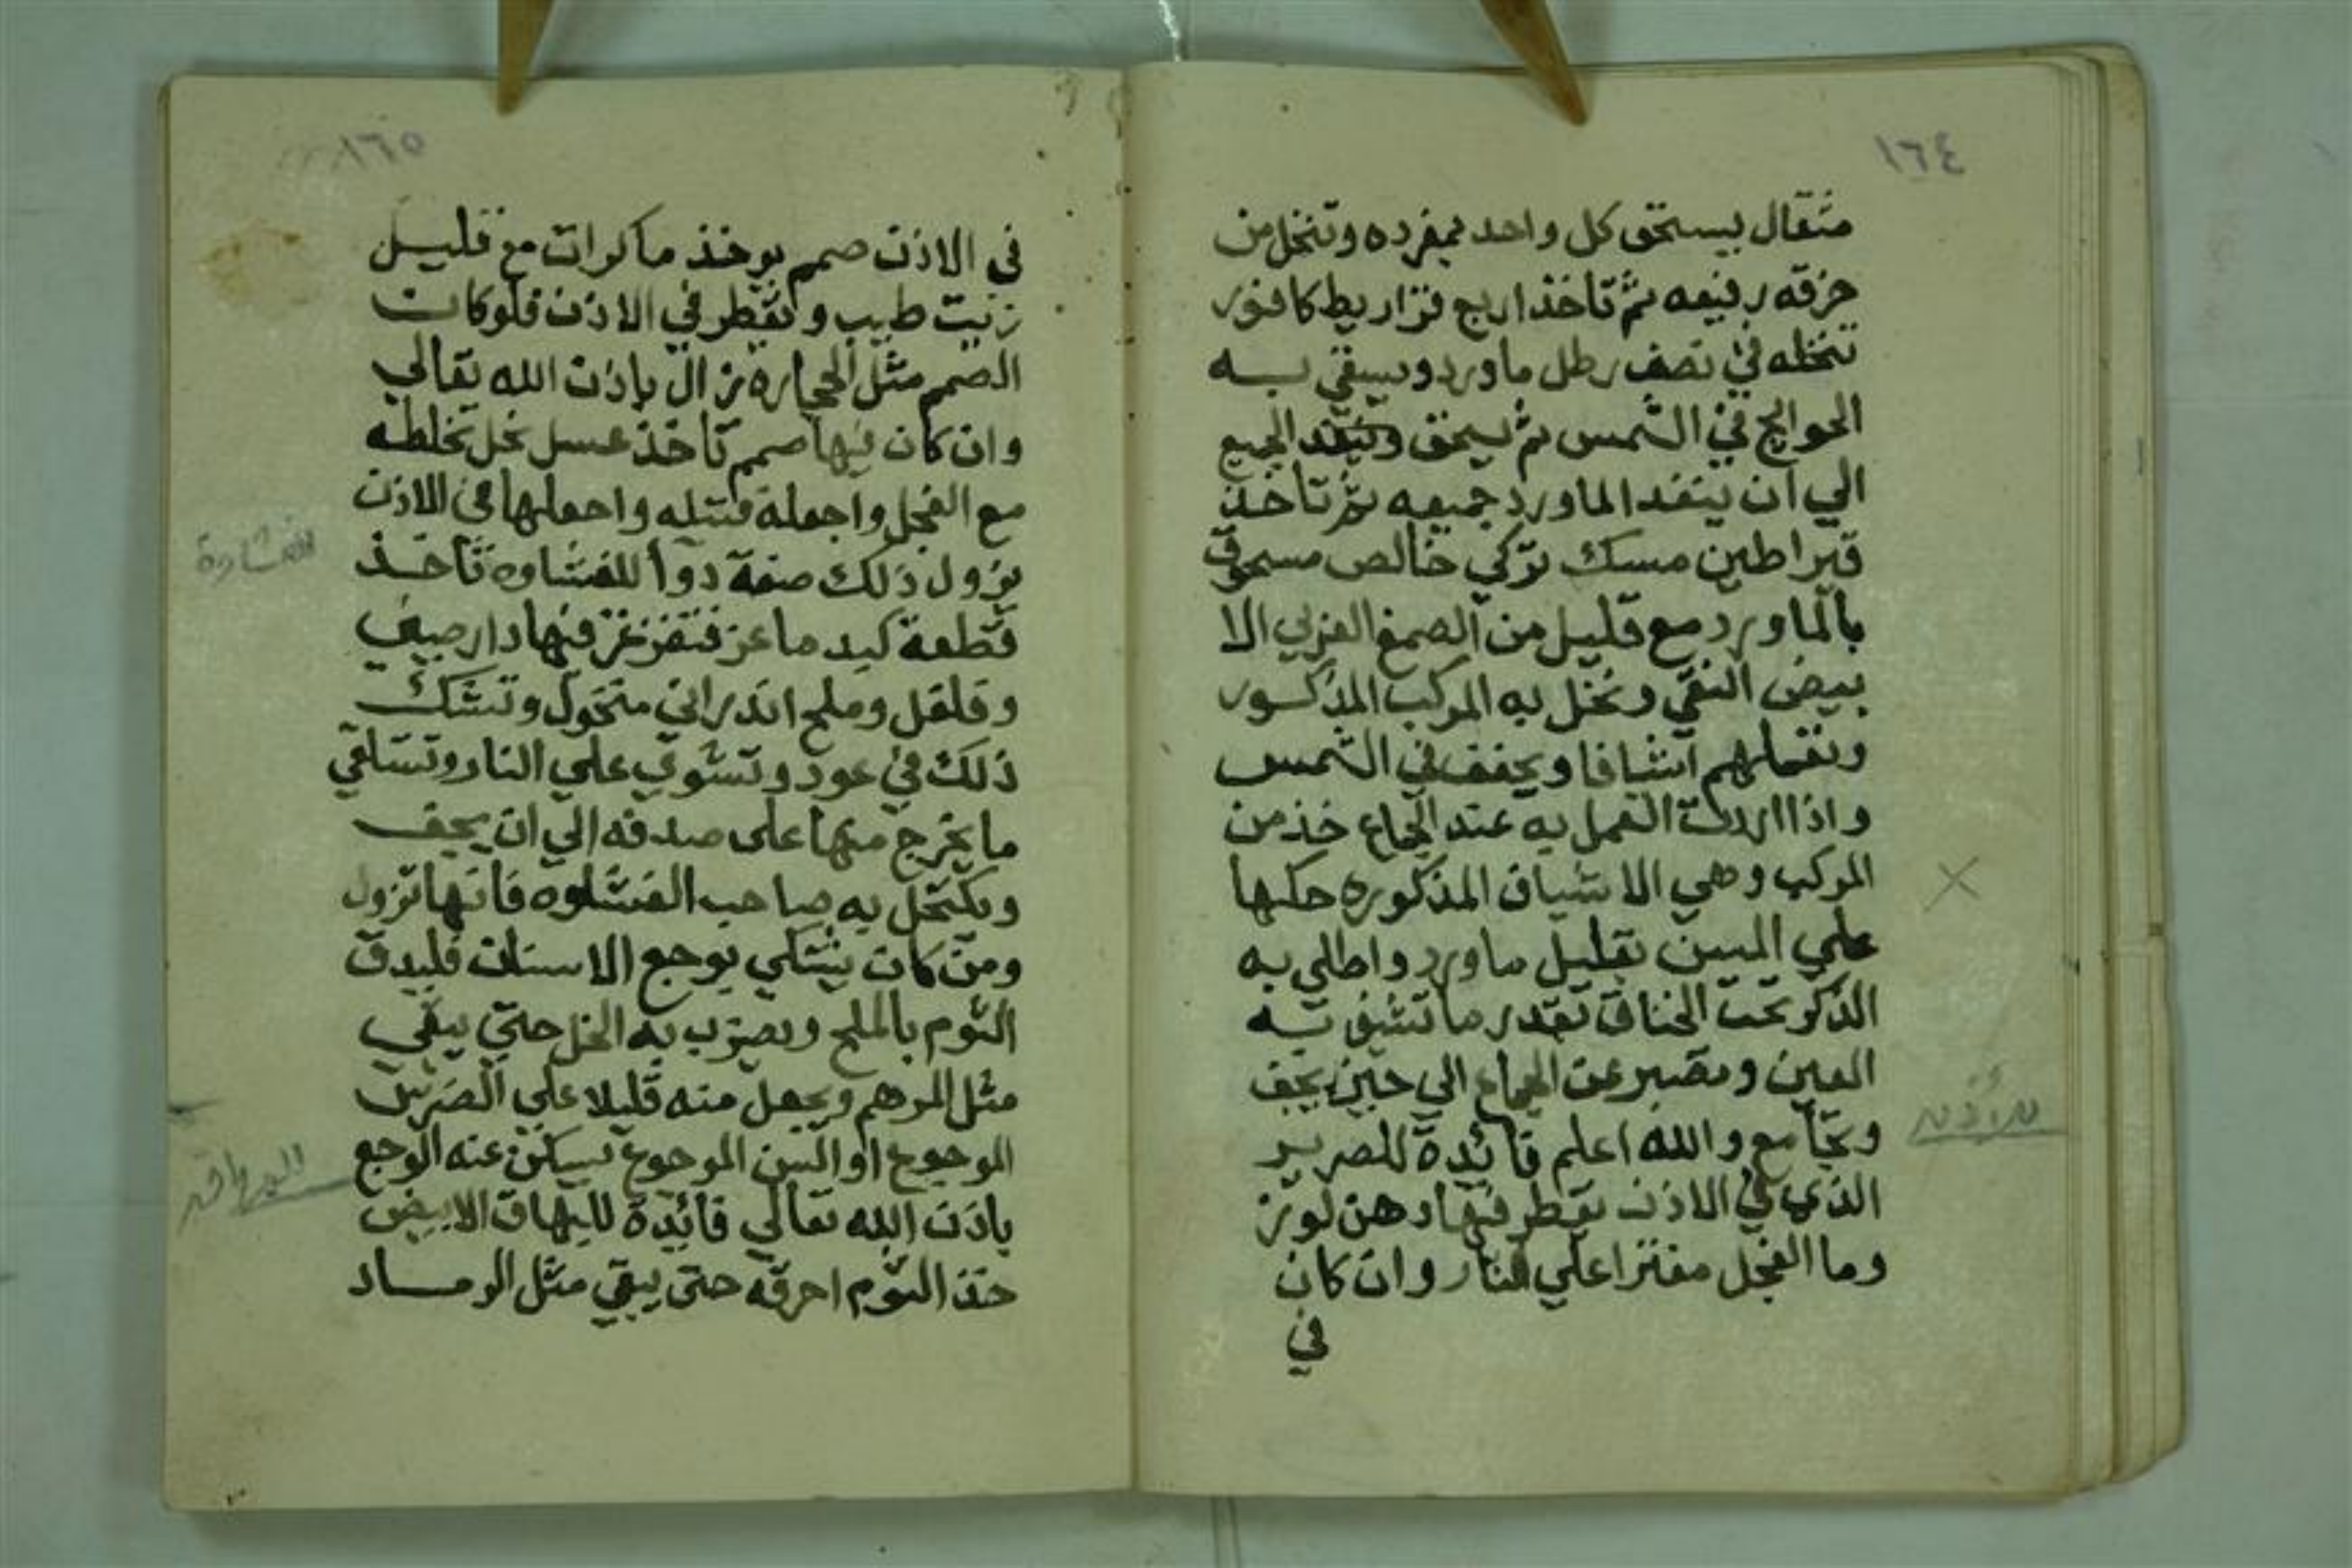 ١٦٤
مثقال يستحق كل واحد بمفرده وتنخل من
خرقه رفيعه ثم تاخذ اربع قراريط كافور
تنخله في نصف رطل ماورد ويسقي به
الحوايج في الشمس ثم يسحق الجميع
الي ان ينفد الماورد جميعه ثم تاخذ
قيراطين مسك تركي خالص مسحوق
بالماورد مع قليل من الصمغ العربي الا
بيض النقي ونخل به المركب المذكور
وتعملهم اشيافا ويجفف في الشمس
واذا اردت العمل به عند الجماع خذ من
المركب وهي الاشياف المذكوره حكها
علي المسن بقليل ماورد واطلي به
الذكر تحت الخناق بقدر ما تشيف به
العين وتصبر عن الجماع الي حين يجف
وتجامع والله اعلم فائدة للصرير
الذي في الاذن يقطر فيها دهن لوز
وما الفجل مفترا علي النار وان كان
في
١٦٥
في الاذن صمم يوخذ ما كرات مع قليل
زيت طيب ويقطر في الاذن فلو كان
الصمم مثل الحجاره زال باذن الله تعالي
وان كان فيها صمم تاخذ عسل نحل تخلطه
مع الفجل واجعله فتيله واجعلها في الاذن
يزول ذلك صفة دوا للغشاوه تاخذ
قطعة كبد ماعز فتغرز فيها دارصيني
وفلفل وملح اندراني منخول وتشك
ذلك في عود وتشوي علي النار وتتلقي
ما يخرج منها على صدفه الي ان يجف
ويكتحل به صاحب الغشاوه فانها تزول
ومن كان يشتكي بوجع الاسنان فليدق
الثوم بالملح ويضرب به الخل حتي يبقي
مثل المرهم ويجعل منه قليلا علي الضرس
الموجوع او السن الموجوع يسكن عنه الوجع
باذن الله تعالي فائدة للبهاق الابيض
خذ الثوم احرقه حتى يبقي مثل الرماد
للغشاوة